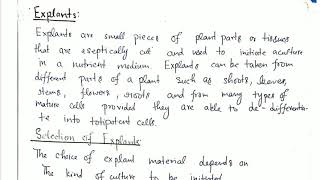 Explants:
Explants are small pieces of plant parts or tissues
that are aseptically cut and used to initiate a culture
in a nutrient medium. Explants can be taken from
different parts of a plant such as shoots, leaves,
stems, flowers, roots and from many types of
mature cells provided they are able to de-differentia-
te into totipotent cells.
Selection of Explants
The choice of explant material depends on
The kind of culture to be initiated